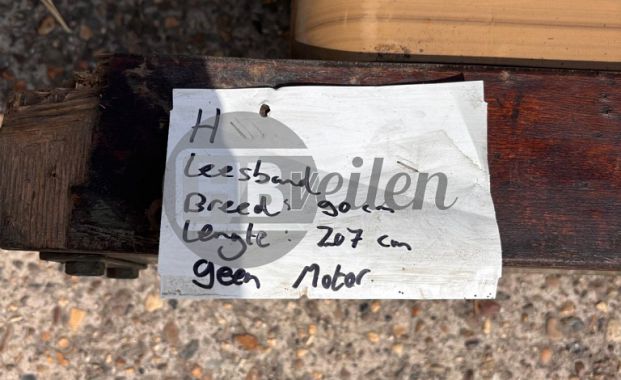 H
Leesband
Breed: 90 cm
Lengte: 207 cm
geen Motor
Bveilen